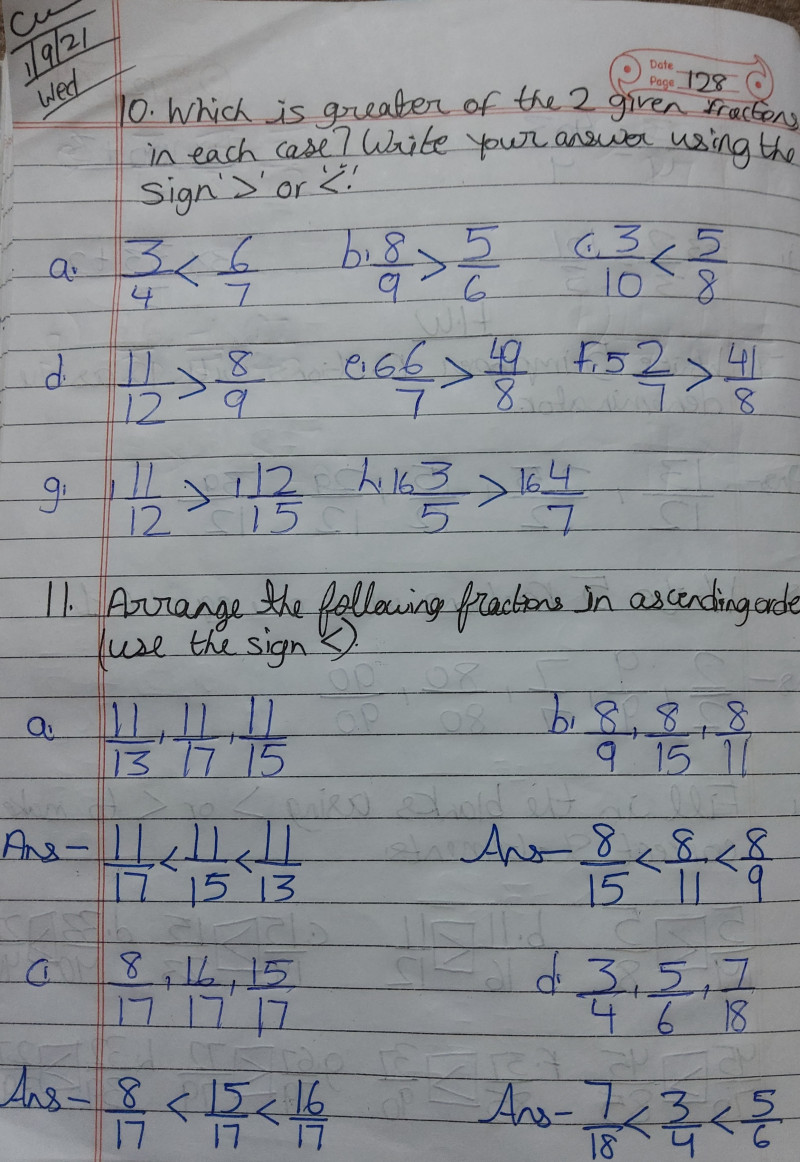 Cw
1/9/21
Wed
Date
Page 128
10. Which is greater of the 2 given fractions
in each case? Write your answer using the
sign '>' or '<'.
a. 3/4 < 6/7 b. 8/9 > 5/6 c. 3/10 < 5/8
d. 11/12 > 8/9 e. 6 6/7 > 49/8 f. 5 2/7 > 41/8
g. 1 11/12 > 1 12/15 h. 16 3/5 > 16 4/7
11. Arrange the following fractions in ascending orde
(use the sign <).
a. 11/13, 11/17, 11/15 b. 8/9, 8/15, 8/11
Ans- 11/17 < 11/15 < 11/13 Ans- 8/15 < 8/11 < 8/9
c. 8/17, 16/17, 15/17 d. 3/4, 5/6, 7/18
Ans- 8/17 < 15/17 < 16/17 Ans- 7/18 < 3/4 < 5/6